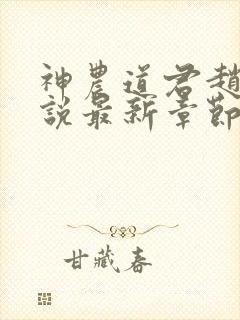 神農道君趙
說最新章節
甘藏春